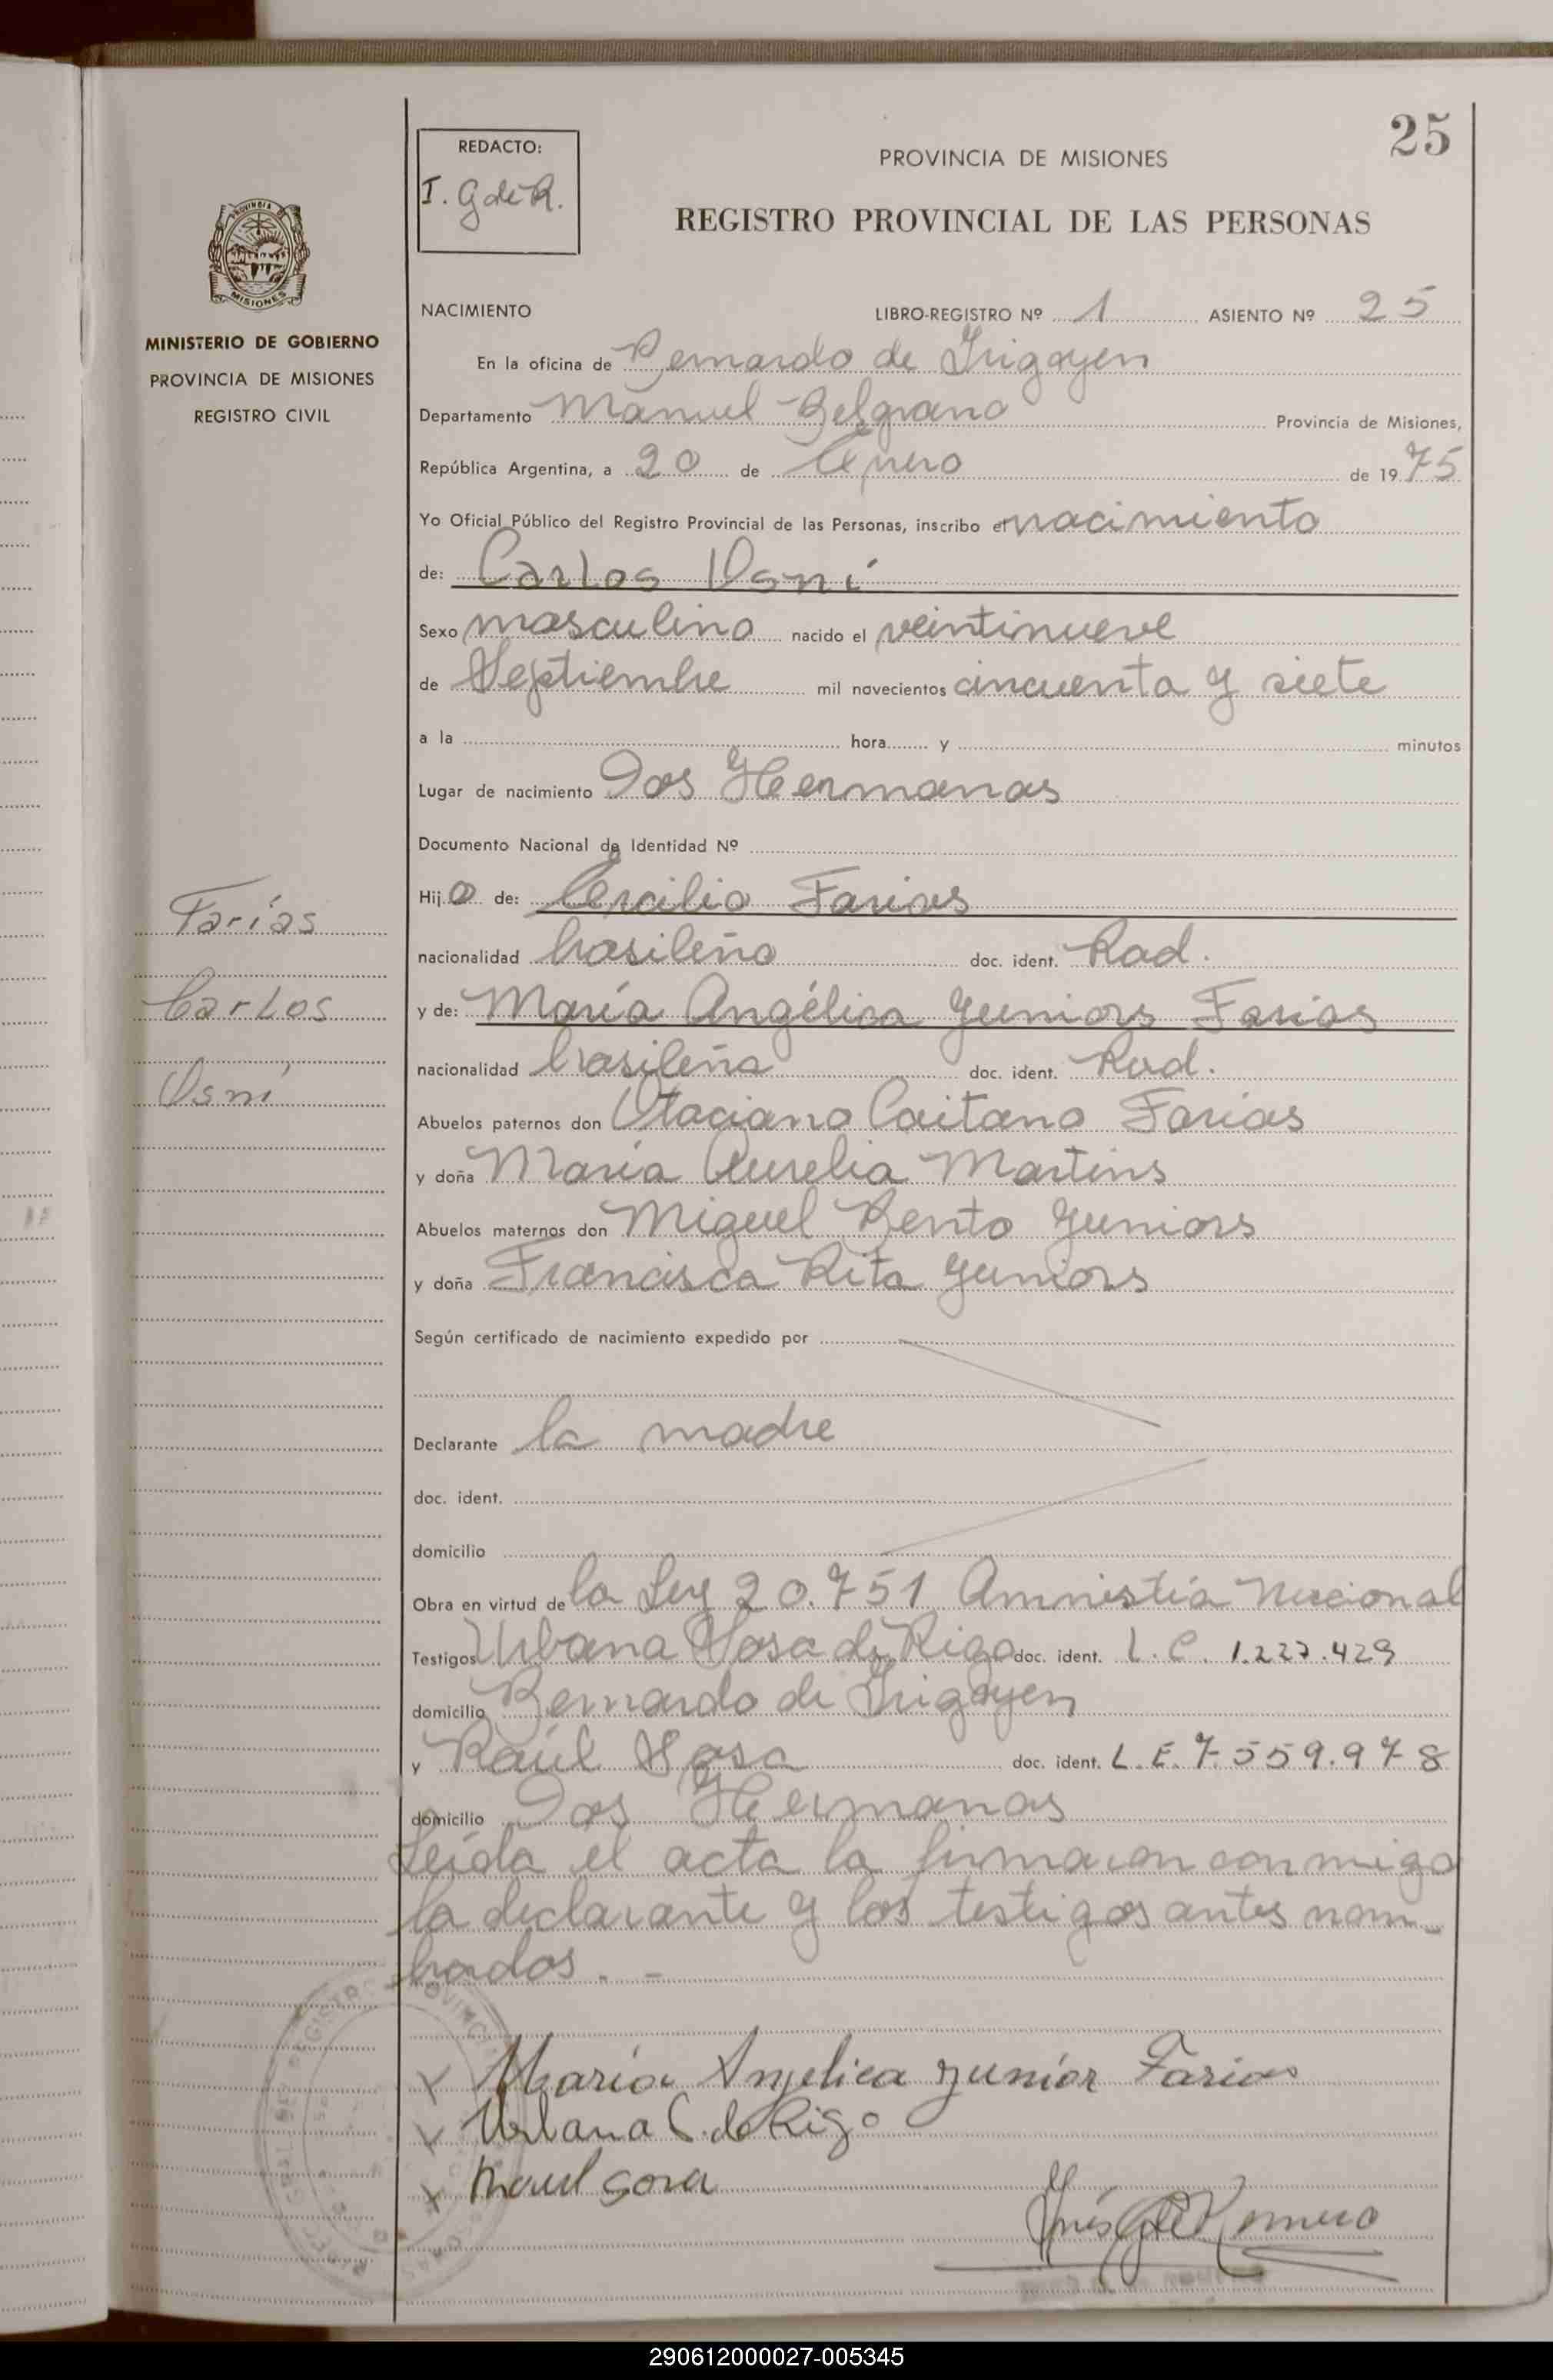 25
REDACTO:
I. G de R.
PROVINCIA DE MISIONES
REGISTRO PROVINCIAL DE LAS PERSONAS
MINISTERIO DE GOBIERNO
PROVINCIA DE MISIONES
REGISTRO CIVIL
NACIMIENTO LIBRO-REGISTRO Nº 1 ASIENTO Nº 25
En la oficina de Bernardo de Irigoyen
Departamento Manuel Belgrano Provincia de Misiones,
República Argentina, a 20 de Enero de 1975
Yo Oficial Público del Registro Provincial de las Personas, inscribo el nacimiento
de: Carlos Osni
Sexo masculino nacido el veintinueve
de Septiembre mil novecientos cincuenta y siete
a la hora y minutos
Lugar de nacimiento Dos Hermanas
Documento Nacional de Identidad Nº
Hijo de: Cercilio Farias
nacionalidad brasileña doc. ident. Rad.
y de: María Angélica Juniors Farias
nacionalidad brasileña doc. ident. Rad.
Abuelos paternos don Otaciano Caitano Farias
y doña María Aurelia Martins
Abuelos maternos don Miguel Bento Juniors
y doña Francisca Rita Juniors
Según certificado de nacimiento expedido por
Declarante la madre
doc. ident.
domicilio
Obra en virtud de la Ley 20.751 Amnistía Nacional
Testigos Urbana Sosa de Rigo doc. ident. L.C. 1.227.429
domicilio Bernardo de Irigoyen
y Raúl Sosa doc. ident. L.E. 7.559.978
domicilio Dos Hermanas
Leída el acta la firmaron conmigo
la declarante y los testigos antes nom-
brados. -
Farías
Carlos
Osni
María Anjelica Junior Farias
Urbana S. de Rigo
Raul Sosa
Inés G de Romero
290612000027-005345